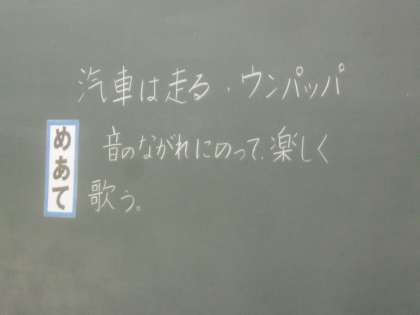 汽車は走る・ウンパッパ
めあて
音のながれにのって、楽しく
歌う。